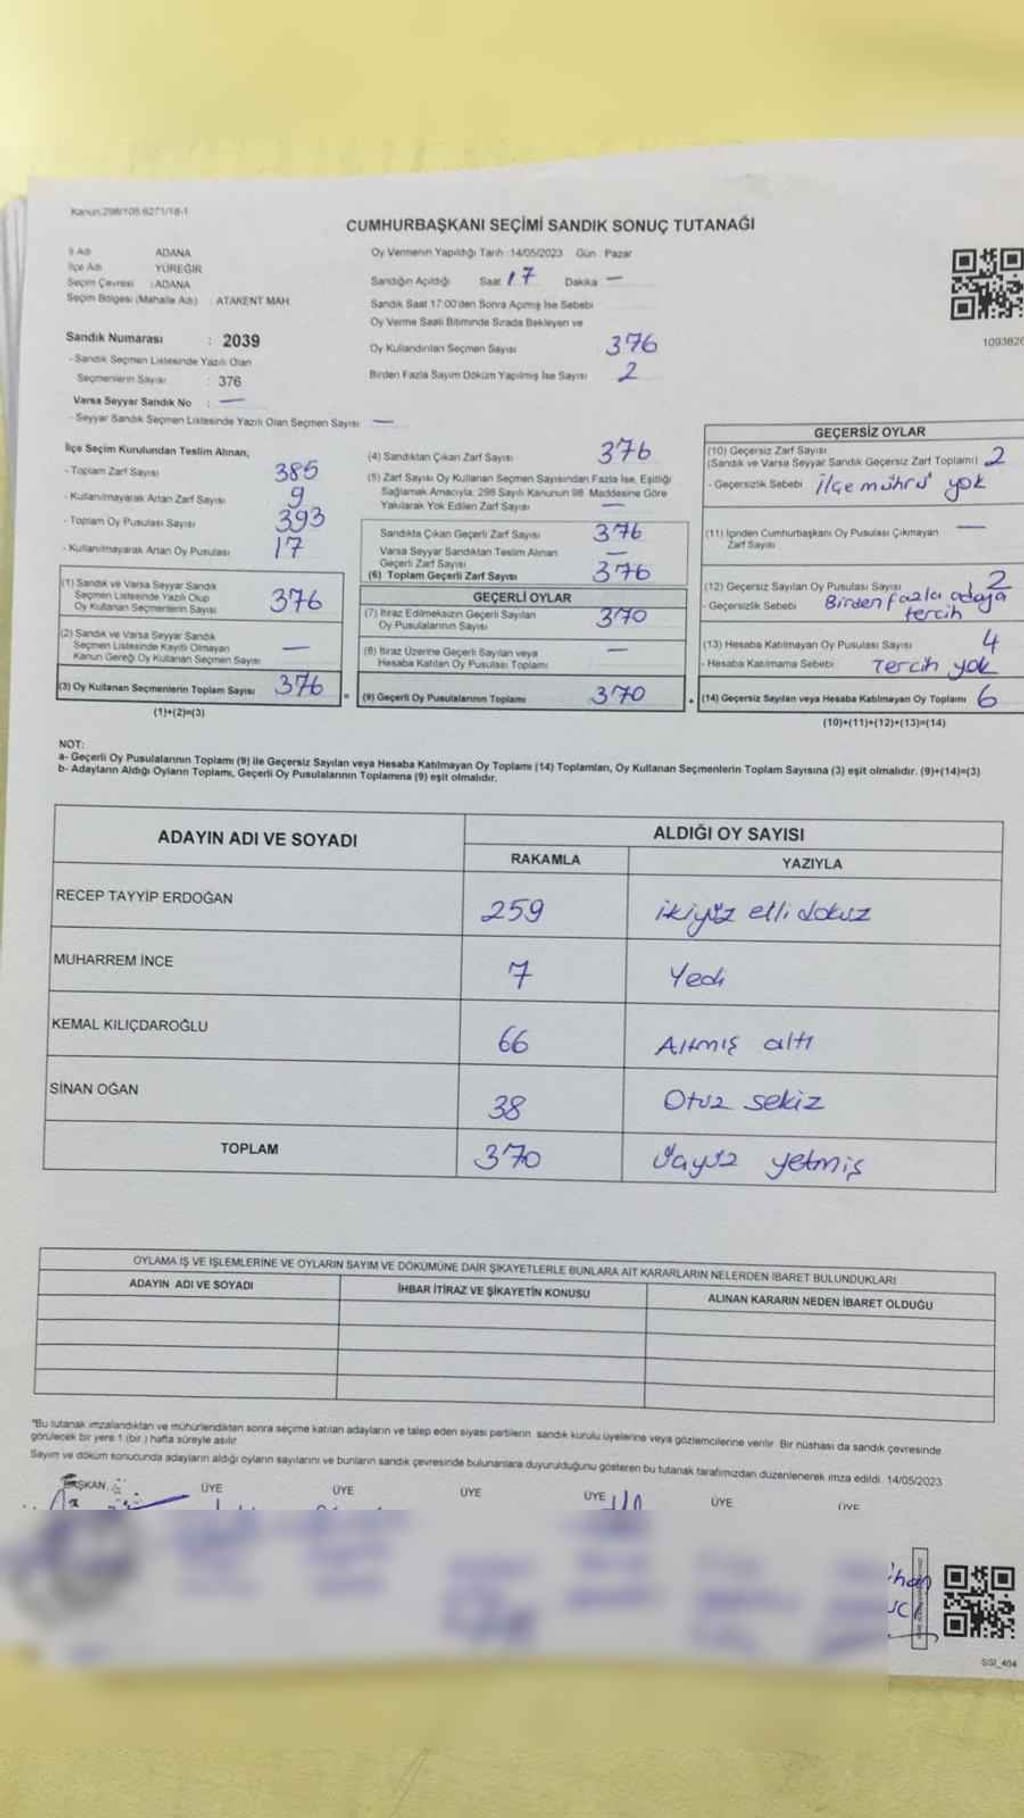 Kanun:298/105 6271/18-1
CUMHURBAŞKANI SEÇİMİ SANDIK SONUÇ TUTANAĞI
İl Adı ADANA
İlçe Adı YÜREĞİR
Seçim Çevresi : ADANA
Seçim Bölgesi (Mahalle Adı) : ATAKENT MAH.
Sandık Numarası : 2039
- Sandık Seçmen Listesinde Yazılı Olan
Seçmenlerin Sayısı : 376
Varsa Seyyar Sandık No : —
- Seyyar Sandık Seçmen Listesinde Yazılı Olan Seçmen Sayısı —
Oy Vermenin Yapıldığı Tarih : 14/05/2023 Gün : Pazar
Sandığın Açıldığı Saat 17 Dakika —
Sandık Saat 17:00'den Sonra Açılmış İse Sebebi
Oy Verme Saati Bitiminde Sırada Bekleyen ve
Oy Kullandırılan Seçmen Sayısı 376
Birden Fazla Sayım Döküm Yapılmış İse Sayısı 2
1093826
İlçe Seçim Kurulundan Teslim Alınan;
- Toplam Zarf Sayısı 385
- Kullanılmayarak Artan Zarf Sayısı 9
- Toplam Oy Pusulası Sayısı 393
- Kullanılmayarak Artan Oy Pusulası 17
(1) Sandık ve Varsa Seyyar Sandık
Seçmen Listesinde Yazılı Olup
Oy Kullanan Seçmenlerin Sayısı 376
(2) Sandık ve Varsa Seyyar Sandık
Seçmen Listesinde Kayıtlı Olmayan
Kanun Gereği Oy Kullanan Seçmen Sayısı —
(3) Oy Kullanan Seçmenlerin Toplam Sayısı 376
(1)+(2)=(3)
(4) Sandıktan Çıkan Zarf Sayısı 376
(5) Zarf Sayısı Oy Kullanan Seçmen Sayısından Fazla İse, Eşitliği
Sağlamak Amacıyla; 298 Sayılı Kanunun 98. Maddesine Göre
Yakılarak Yok Edilen Zarf Sayısı —
Sandıkta Çıkan Geçerli Zarf Sayısı 376
Varsa Seyyar Sandıktan Teslim Alınan
Geçerli Zarf Sayısı —
(6) Toplam Geçerli Zarf Sayısı 376
GEÇERLİ OYLAR
(7) İtiraz Edilmeksizin Geçerli Sayılan
Oy Pusulalarının Sayısı 370
(8) İtiraz Üzerine Geçerli Sayılan veya
Hesaba Katılan Oy Pusulası Toplamı —
= (9) Geçerli Oy Pusulalarının Toplamı 370
GEÇERSİZ OYLAR
(10) Geçersiz Zarf Sayısı
(Sandık ve Varsa Seyyar Sandık Geçersiz Zarf Toplamı) 2
- Geçersizlik Sebebi ilçe mührü yok
(11) İçinden Cumhurbaşkanı Oy Pusulası Çıkmayan —
Zarf Sayısı
(12) Geçersiz Sayılan Oy Pusulası Sayısı 2
- Geçersizlik Sebebi Birden fazla adaya
tercih
(13) Hesaba Katılmayan Oy Pusulası Sayısı 4
- Hesaba Katılmama Sebebi Tercih yok
+ (14) Geçersiz Sayılan veya Hesaba Katılmayan Oy Toplamı 6
(10)+(11)+(12)+(13)=(14)
NOT:
a- Geçerli Oy Pusulalarının Toplamı (9) ile Geçersiz Sayılan veya Hesaba Katılmayan Oy Toplamı (14) Toplamları, Oy Kullanan Seçmenlerin Toplam Sayısına (3) eşit olmalıdır. (9)+(14)=(3)
b- Adayların Aldığı Oyların Toplamı, Geçerli Oy Pusulalarının Toplamına (9) eşit olmalıdır.
ADAYIN ADI VE SOYADI ALDIĞI OY SAYISI
RAKAMLA YAZIYLA
RECEP TAYYİP ERDOĞAN 259 ikiyüz elli dokuz
MUHARREM İNCE 7 Yedi
KEMAL KILIÇDAROĞLU 66 Altmış altı
SİNAN OĞAN 38 Otuz sekiz
TOPLAM 370 yetmiş
OYLAMA İŞ VE İŞLEMLERİNE VE OYLARIN SAYIM VE DÖKÜMÜNE DAİR ŞİKAYETLERLE BUNLARA AİT KARARLARIN NELERDEN İBARET BULUNDUKLARI
ADAYIN ADI VE SOYADI İHBAR İTİRAZ VE ŞİKAYETİN KONUSU ALINAN KARARIN NEDEN İBARET OLDUĞU
"Bu tutanak imzalandıktan ve mühürlendikten sonra seçime katılan adayların ve talep eden siyasi partilerin sandık kurulu üyelerine veya gözlemcilerine verilir. Bir nüshası da sandık çevresinde
görülecek bir yere 1 (bir ) hafta süreyle asılır.
Sayım ve döküm sonucunda adayların aldığı oyların sayılarını ve bunların sandık çevresinde bulunanlara duyurulduğunu gösteren bu tutanak tarafımızdan düzenlenerek imza edildi. 14/05/2023
BAŞKAN ÜYE ÜYE ÜYE ÜYE ÜYE ÜYE